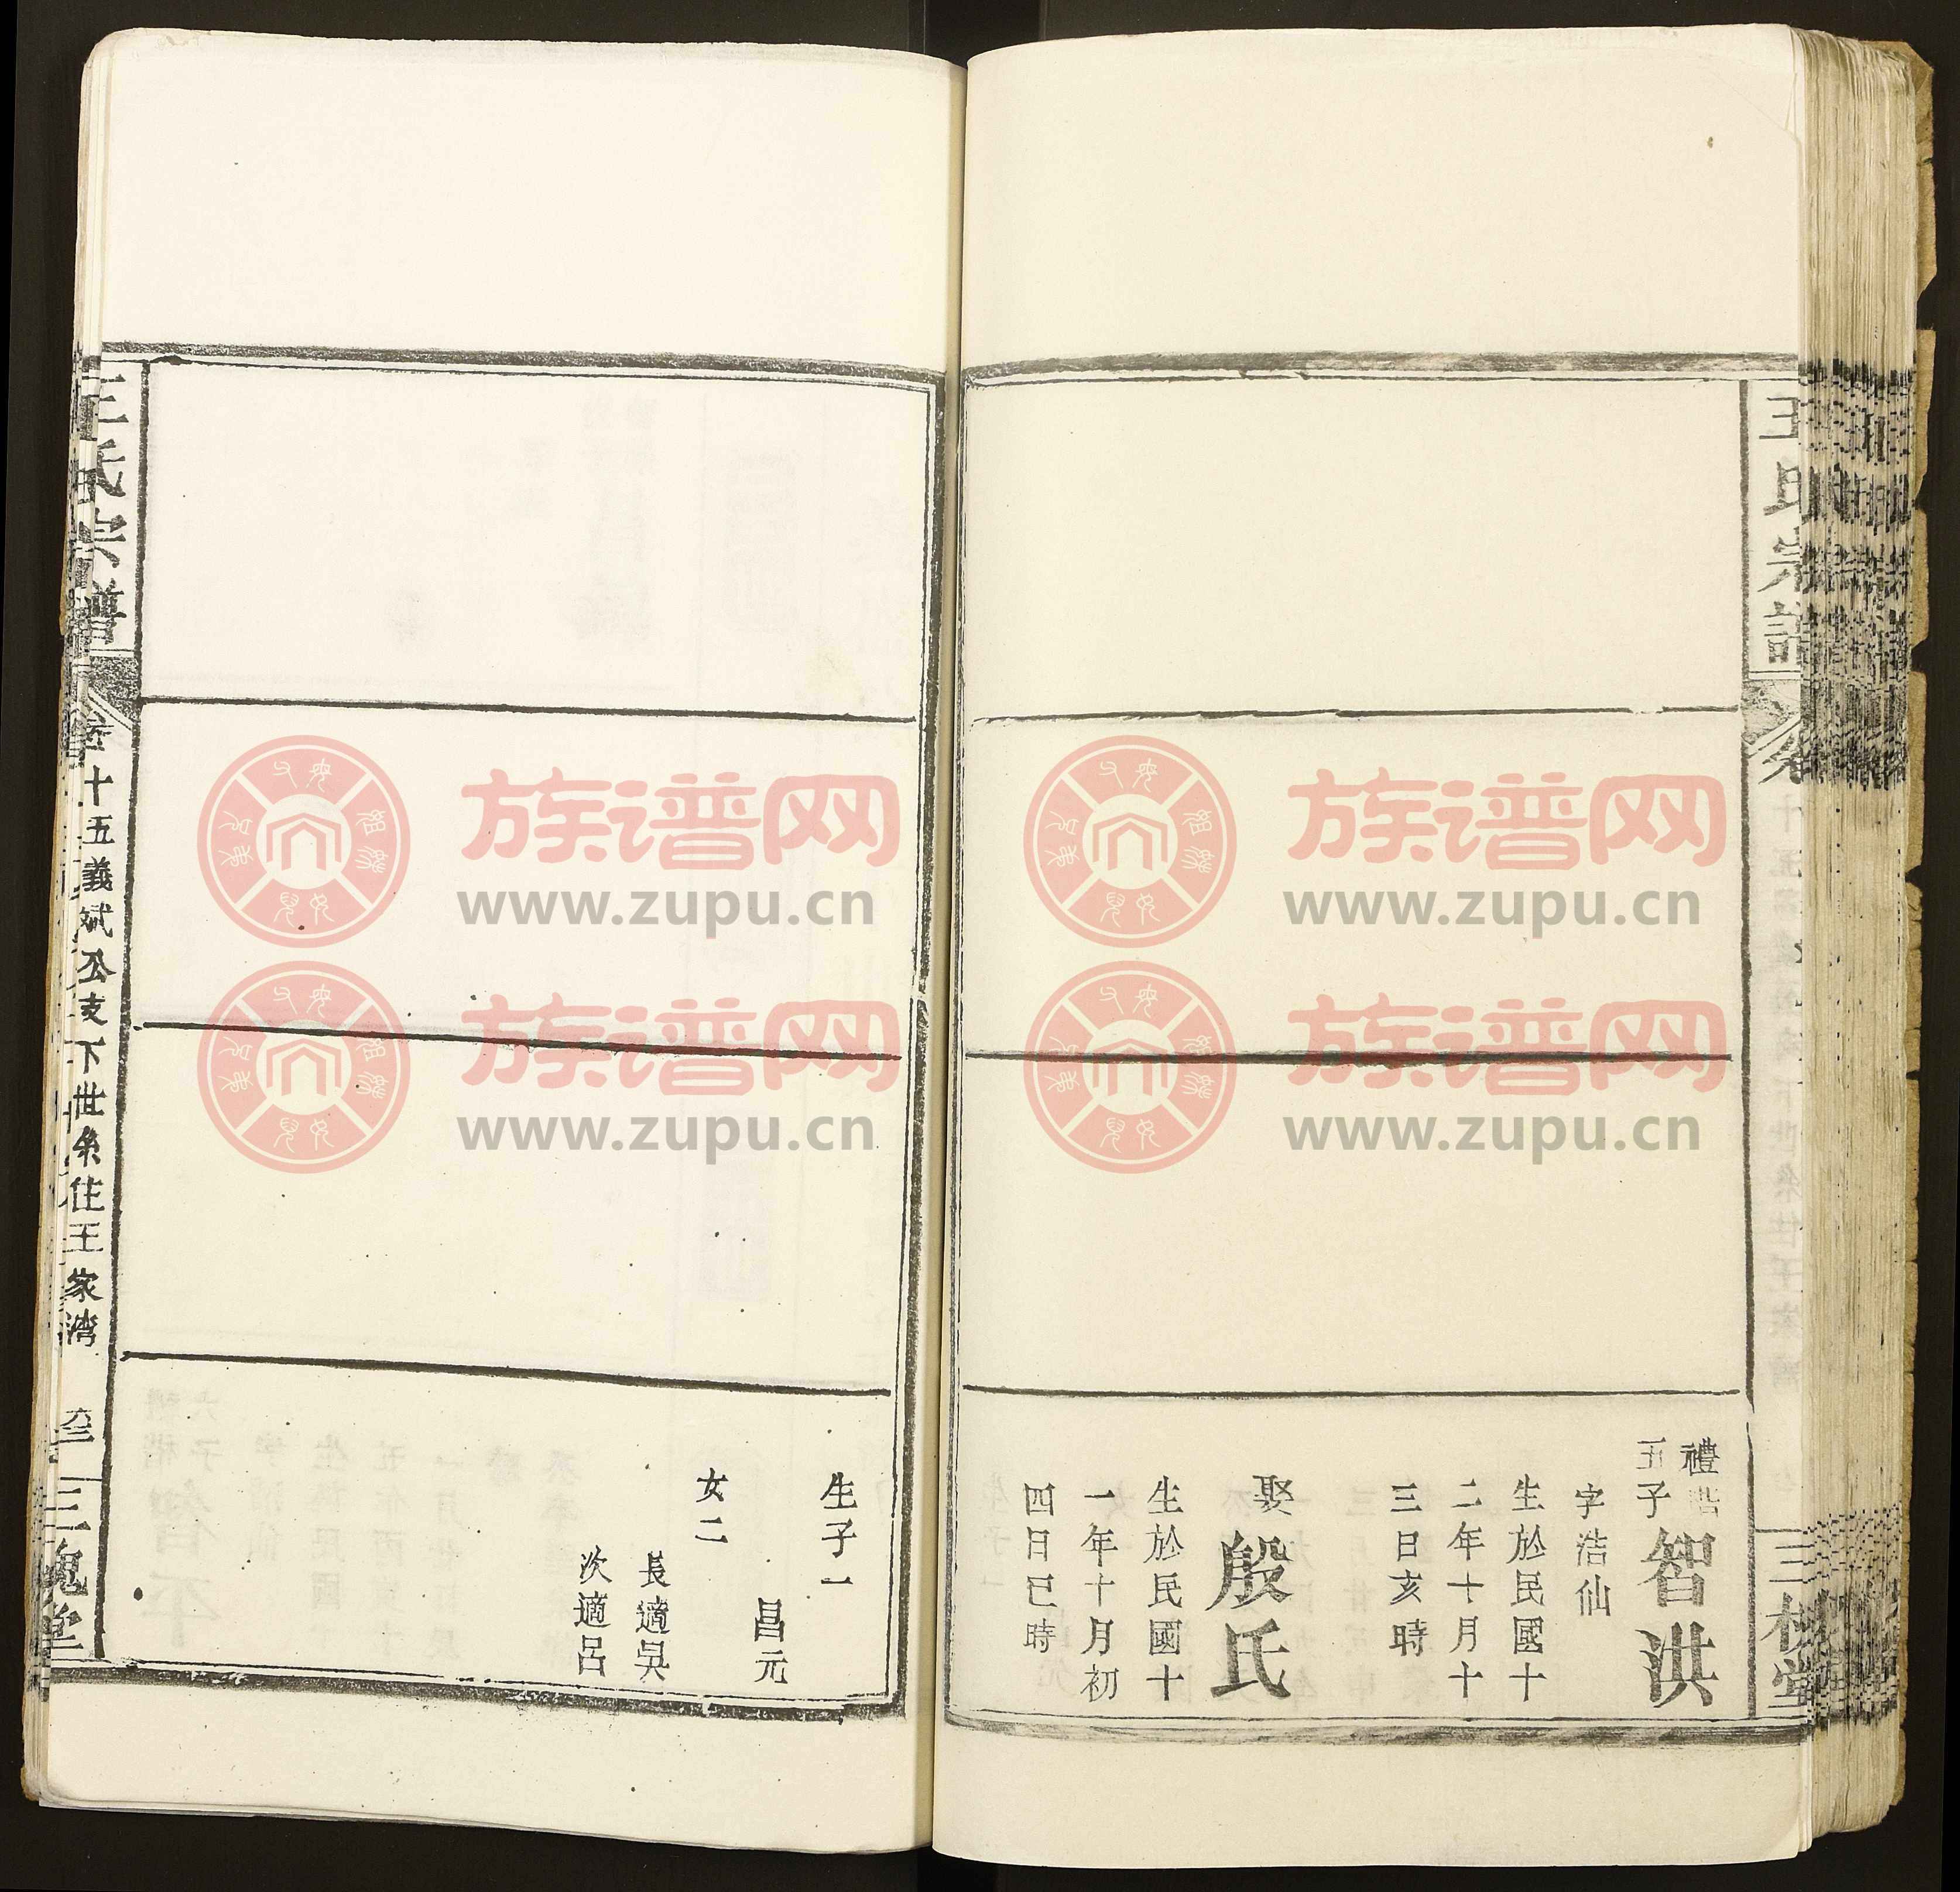 王氏宗譜
三槐堂
五子
智洪
字浩仙
生於民國十
二年十月十
三日亥時
娶
殷氏
生於民國十
一年十月初
四日巳時
生子一
昌元
女二
長適吳
次適呂
王氏宗譜
卷十五義斌公支下世系住王家灣
三槐堂
族谱网
www.zupu.cn
族谱网
www.zupu.cn
族谱网
www.zupu.cn
族谱网
www.zupu.cn